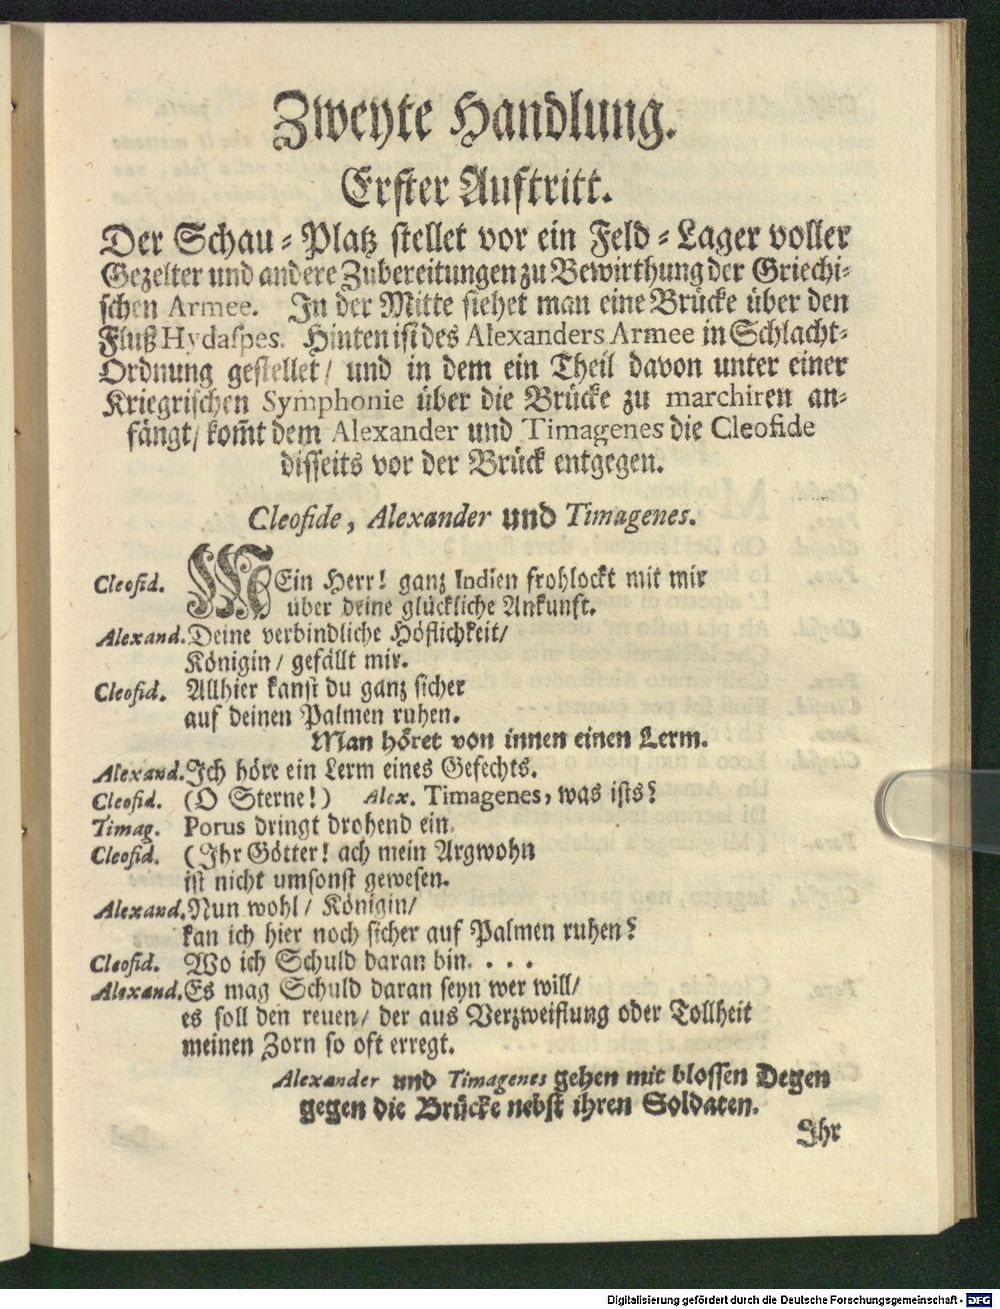 Zweyte Handlung.
Erster Auftritt.
Der Schau-Platz stellet vor ein Feld-Lager voller
Gezelter und andere Zubereitungen zu Bewirthung der Griechi-
schen Armee. In der Mitte siehet man eine Brücke über den
Fluß Hydaspes. Hinten ist des Alexanders Armee in Schlacht-
Ordnung gestellet/ und in dem ein Theil davon unter einer
Kriegrischen Symphonie über die Brücke zu marchiren an-
fängt/ kom̃t dem Alexander und Timagenes die Cleofide
disseits vor der Brück entgegen.
Cleofide, Alexander und Timagenes.
Cleofid. MEin Herr! ganz Indien frohlockt mit mir
über deine glückliche Ankunft.
Alexand. Deine verbindliche Höflichkeit/
Königin/ gefällt mir.
Cleofid. Allhier kanst du ganz sicher
auf deinen Palmen ruhen.
Man höret von innen einen Lerm.
Alexand. Ich höre ein Lerm eines Gefechts.
Cleofid. (O Sterne!) Alex. Timagenes, was ists?
Timag. Porus dringt drohend ein.
Cleofid. (Ihr Götter! ach mein Argwohn
ist nicht umsonst gewesen.
Alexand. Nun wohl/ Königin/
kan ich hier noch sicher auf Palmen ruhen?
Cleofid. Wo ich Schuld daran bin. . . .
Alexand. Es mag Schuld daran seyn wer will/
es soll den reuen/ der aus Verzweiflung oder Tollheit
meinen Zorn so oft erregt.
Alexander und Timagenes gehen mit blossen Degen
gegen die Brücke nebst ihren Soldaten.
Ihr
Digitalisierung gefördert durch die Deutsche Forschungsgemeinschaft - DFG